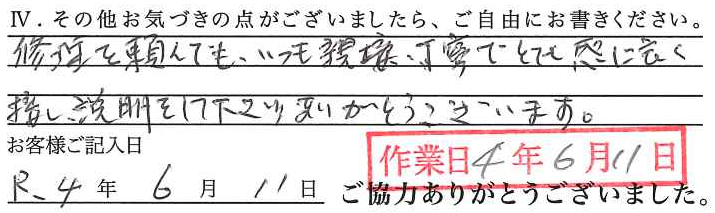 Ⅳ.その他お気づきの点がございましたら、ご自由にお書きください。
修理を頼んでも、いつも親切、丁寧でとても感じ良く
接し説明をして下さりありがとうございます。
お客様ご記入日
作業日4年6月11日
R.4年6月11日 ご協力ありがとうございました。